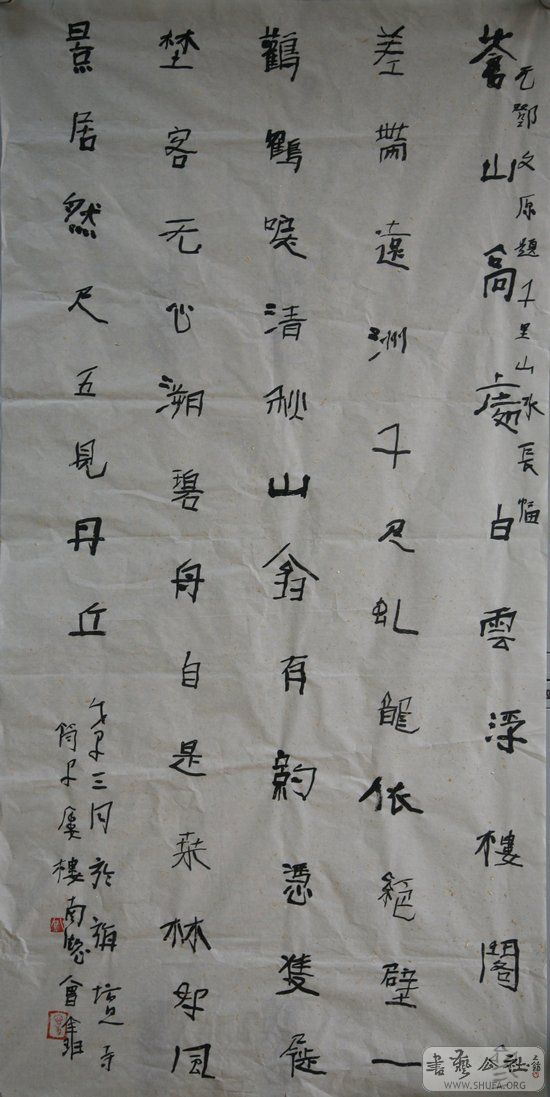 元鄧文原題千里山水長幅
蒼山高處白雲浮樓閣參
差帶遠洲千尺虬龍依絕壁一
鸛鶴唳清秋山翁有約憑隻屐
埜客无心溯碧舟自是林好風
景居然尺五見丹丘
戊子三月於寺
樓南窓會
書藝公社
WWW.SHUFA.ORG